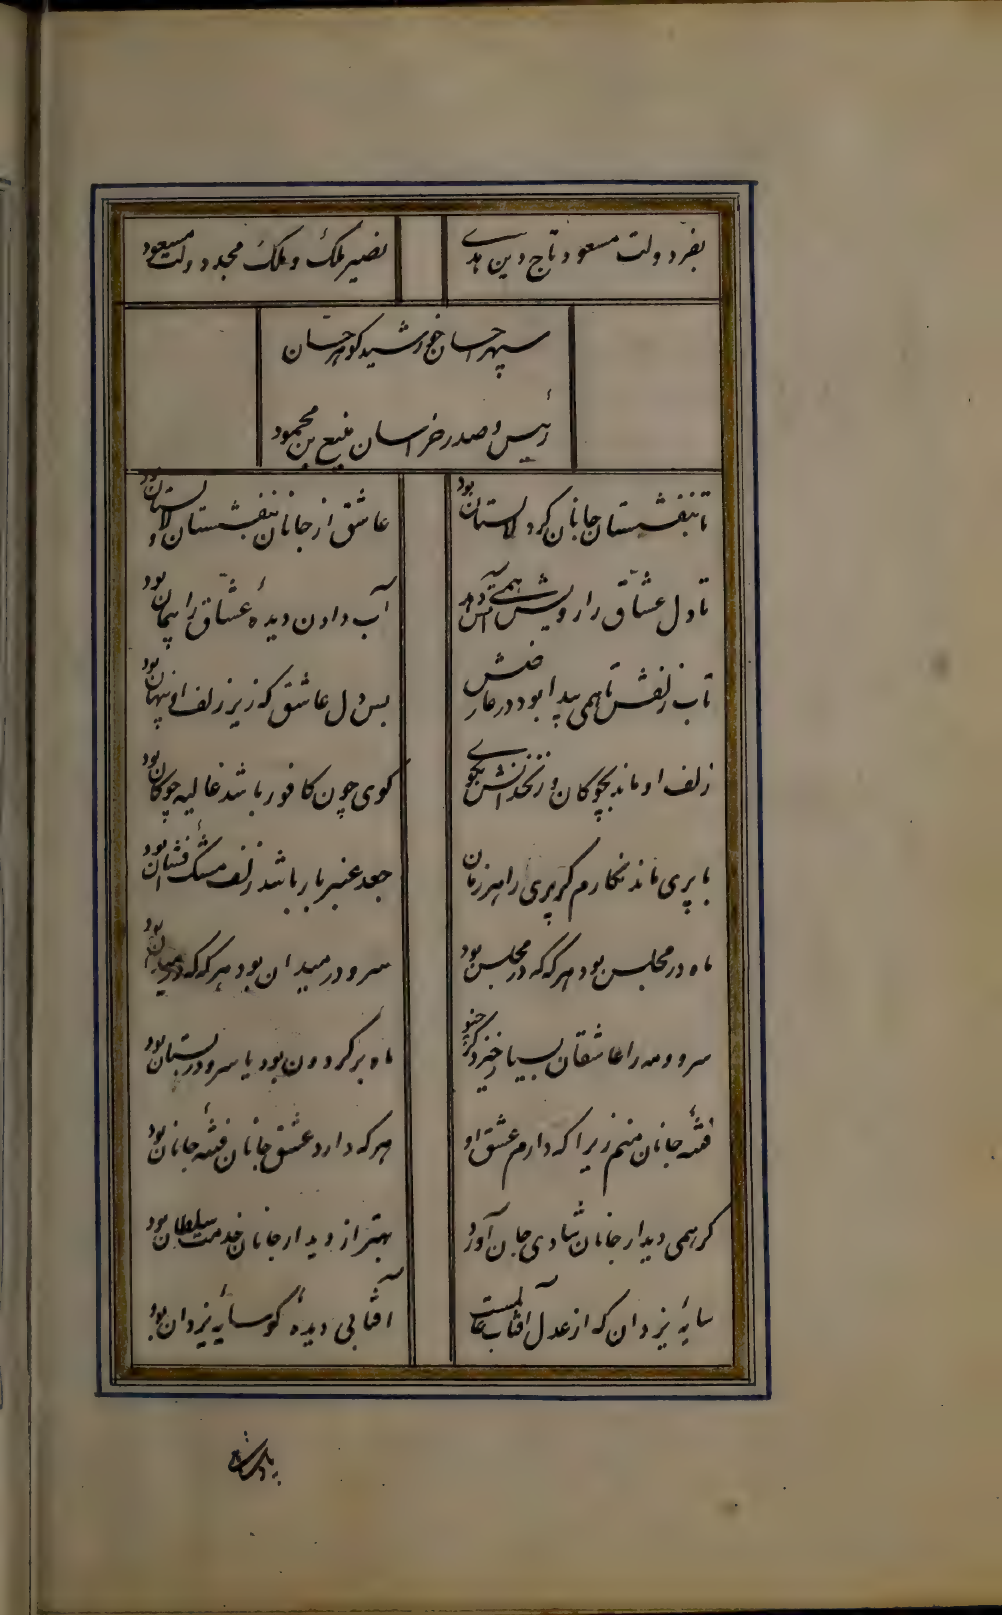 بفرّ دولت مسعود و تاج دین هدی
نصیر ملک و ملک مجد دولت مسعود
سپهر احسان خورشید گوهر حسان
رئیس و صدر خراسان منیع بن محمود
تا بنفشستان جانان گرد لالستان بود
عاشق از جانان بنفشستان و لالستان بود
تا دل عشّاق را رویش همی آتش دهد
آب دادن دیدهٔ عشّاق را پیمان بود
تاب زلفش تا همی پیدا بود در عارضش
بس دل عاشق که زیر زلف او پنهان بود
زلف او ماند بچوکان و زنخدانش بگوی
کوی چون کافور باشد غالیه چوکان بود
با پری ماند نگارم گر پری را هر زمان
جعد عنبر بار باشد زلف مشک افشان بود
ماه در مجلس بود هرگه که در مجلس بود
سرو در میدان بود هرگه که در میدان بود
سرو و مه را عاشقان بسیار خیزد
ماه بر گردون بود یا سرو در بستان بود
فتنهٔ جانان منم زیرا که دارم عشق او
هرکه دارد عشق جانان فتنهٔ جانان بود
گر همی دیدار جانان شادی جان آورد
بهتر از دیدار جانان خدمت سلطان بود
سایهٔ یزدان که از عدل آفتاب عالمست
آفتابی دیدهٔ کو سایهٔ یزدان بود
پادشاه